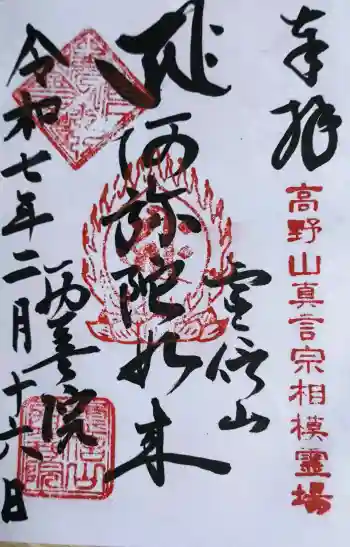 奉拝
高野山真言宗相模霊場
霊信山
阿弥陀如来
西善院
令和七年二月十六日